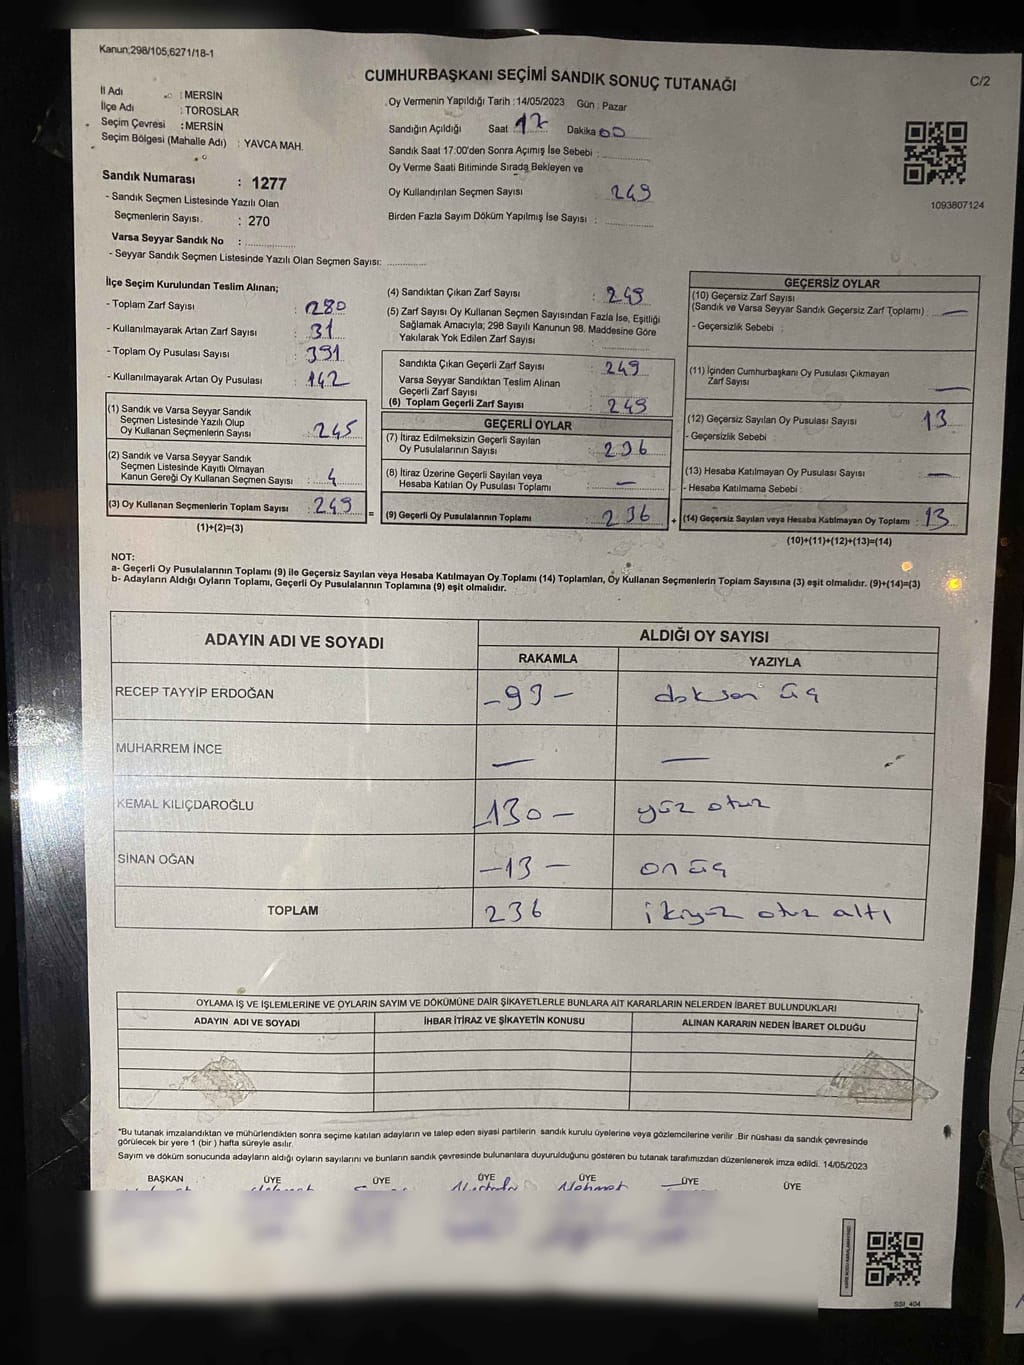 Kanun;298/105,6271/18-1
CUMHURBAŞKANI SEÇİMİ SANDIK SONUÇ TUTANAĞI
C/2
İl Adı : MERSİN
İlçe Adı : TOROSLAR
Seçim Çevresi : MERSİN
Seçim Bölgesi (Mahalle Adı) : YAVCA MAH.
Sandık Numarası : 1277
- Sandık Seçmen Listesinde Yazılı Olan
Seçmenlerin Sayısı. : 270
Varsa Seyyar Sandık No :
- Seyyar Sandık Seçmen Listesinde Yazılı Olan Seçmen Sayısı:
Oy Vermenin Yapıldığı Tarih : 14/05/2023 Gün : Pazar
Sandığın Açıldığı Saat 17 Dakika 00
Sandık Saat 17:00'den Sonra Açımış İse Sebebi :
Oy Verme Saati Bitiminde Sırada Bekleyen ve
Oy Kullandırılan Seçmen Sayısı 249
Birden Fazla Sayım Döküm Yapılmış İse Sayısı :
1093807124
İlçe Seçim Kurulundan Teslim Alınan;
- Toplam Zarf Sayısı : 280
- Kullanılmayarak Artan Zarf Sayısı : 31
- Toplam Oy Pusulası Sayısı : 391
- Kullanılmayarak Artan Oy Pusulası : 142
(1) Sandık ve Varsa Seyyar Sandık
Seçmen Listesinde Yazılı Olup
Oy Kullanan Seçmenlerin Sayısı : 245
(2) Sandık ve Varsa Seyyar Sandık
Seçmen Listesinde Kayıtlı Olmayan
Kanun Gereği Oy Kullanan Seçmen Sayısı : 4
(3) Oy Kullanan Seçmenlerin Toplam Sayısı : 249
(1)+(2)=(3)
=
(4) Sandıktan Çıkan Zarf Sayısı : 249
(5) Zarf Sayısı Oy Kullanan Seçmen Sayısından Fazla İse, Eşitliği
Sağlamak Amacıyla; 298 Sayılı Kanunun 98. Maddesine Göre
Yakılarak Yok Edilen Zarf Sayısı :
Sandıkta Çıkan Geçerli Zarf Sayısı : 249
Varsa Seyyar Sandıktan Teslim Alınan
Geçerli Zarf Sayısı :
(6) Toplam Geçerli Zarf Sayısı : 249
GEÇERLİ OYLAR
(7) İtiraz Edilmeksizin Geçerli Sayılan
Oy Pusulalarının Sayısı : 236
(8) İtiraz Üzerine Geçerli Sayılan veya
Hesaba Katılan Oy Pusulası Toplamı : —
(9) Geçerli Oy Pusulalarının Toplamı : 236
+
GEÇERSİZ OYLAR
(10) Geçersiz Zarf Sayısı
(Sandık ve Varsa Seyyar Sandık Geçersiz Zarf Toplamı) : —
- Geçersizlik Sebebi :
(11) İçinden Cumhurbaşkanı Oy Pusulası Çıkmayan
Zarf Sayısı —
(12) Geçersiz Sayılan Oy Pusulası Sayısı : 13
- Geçersizlik Sebebi
(13) Hesaba Katılmayan Oy Pusulası Sayısı : —
- Hesaba Katılmama Sebebi
(14) Geçersiz Sayılan veya Hesaba Katılmayan Oy Toplamı : 13
(10)+(11)+(12)+(13)=(14)
NOT:
a- Geçerli Oy Pusulalarının Toplamı (9) ile Geçersiz Sayılan veya Hesaba Katılmayan Oy Toplamı (14) Toplamları, Oy Kullanan Seçmenlerin Toplam Sayısına (3) eşit olmalıdır. (9)+(14)=(3)
b- Adayların Aldığı Oyların Toplamı, Geçerli Oy Pusulalarının Toplamına (9) eşit olmalıdır.
ADAYIN ADI VE SOYADI ALDIĞI OY SAYISI
RAKAMLA YAZIYLA
RECEP TAYYİP ERDOĞAN – 93 – doksan üç
MUHARREM İNCE — —
KEMAL KILIÇDAROĞLU 130 – yüz otuz
SİNAN OĞAN – 13 – on üç
TOPLAM 236 ikiyüz otuz altı
OYLAMA İŞ VE İŞLEMLERİNE VE OYLARIN SAYIM VE DÖKÜMÜNE DAİR ŞİKAYETLERLE BUNLARA AİT KARARLARIN NELERDEN İBARET BULUNDUKLARI
ADAYIN ADI VE SOYADI İHBAR İTİRAZ VE ŞİKAYETİN KONUSU ALINAN KARARIN NEDEN İBARET OLDUĞU
*Bu tutanak imzalandıktan ve mühürlendikten sonra seçime katılan adayların ve talep eden siyasi partilerin sandık kurulu üyelerine veya gözlemcilerine verilir .Bir nüshası da sandık çevresinde
görülecek bir yere 1 (bir ) hafta süreyle asılır.
Sayım ve döküm sonucunda adayların aldığı oyların sayılarını ve bunların sandık çevresinde bulunanlara duyurulduğunu gösteren bu tutanak tarafımızdan düzenlenerek imza edildi. 14/05/2023
BAŞKAN ÜYE ÜYE ÜYE ÜYE ÜYE ÜYE
Mehmet
SSI_404